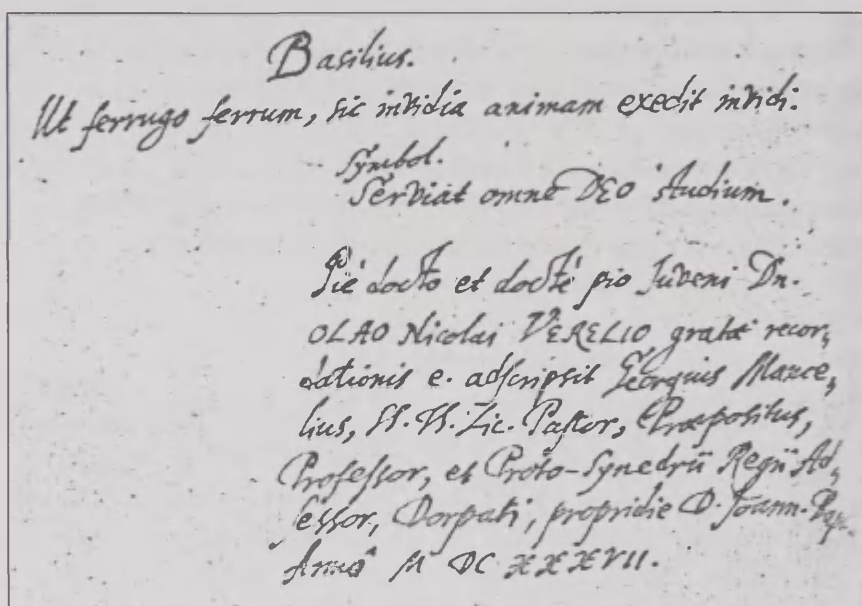 Basilius.
Ut ferrugo ferrum, sic invidia animam exedit invidi.
Symbol.
Serviat omne DEO studium.
Piè docto et doctè pio Juveni Dn.
OLAO Nicolai VERELIO gratae recor,
dationis e. adscripsit Georgius Mance,
lius, SS. Th. Lic. Pastor, Praepositus,
Professor, et Proto-Synedrii Regii Ad,
sessor, Dorpati, propridie D. Joann. Bapt.
Anno M DC XXXVII.